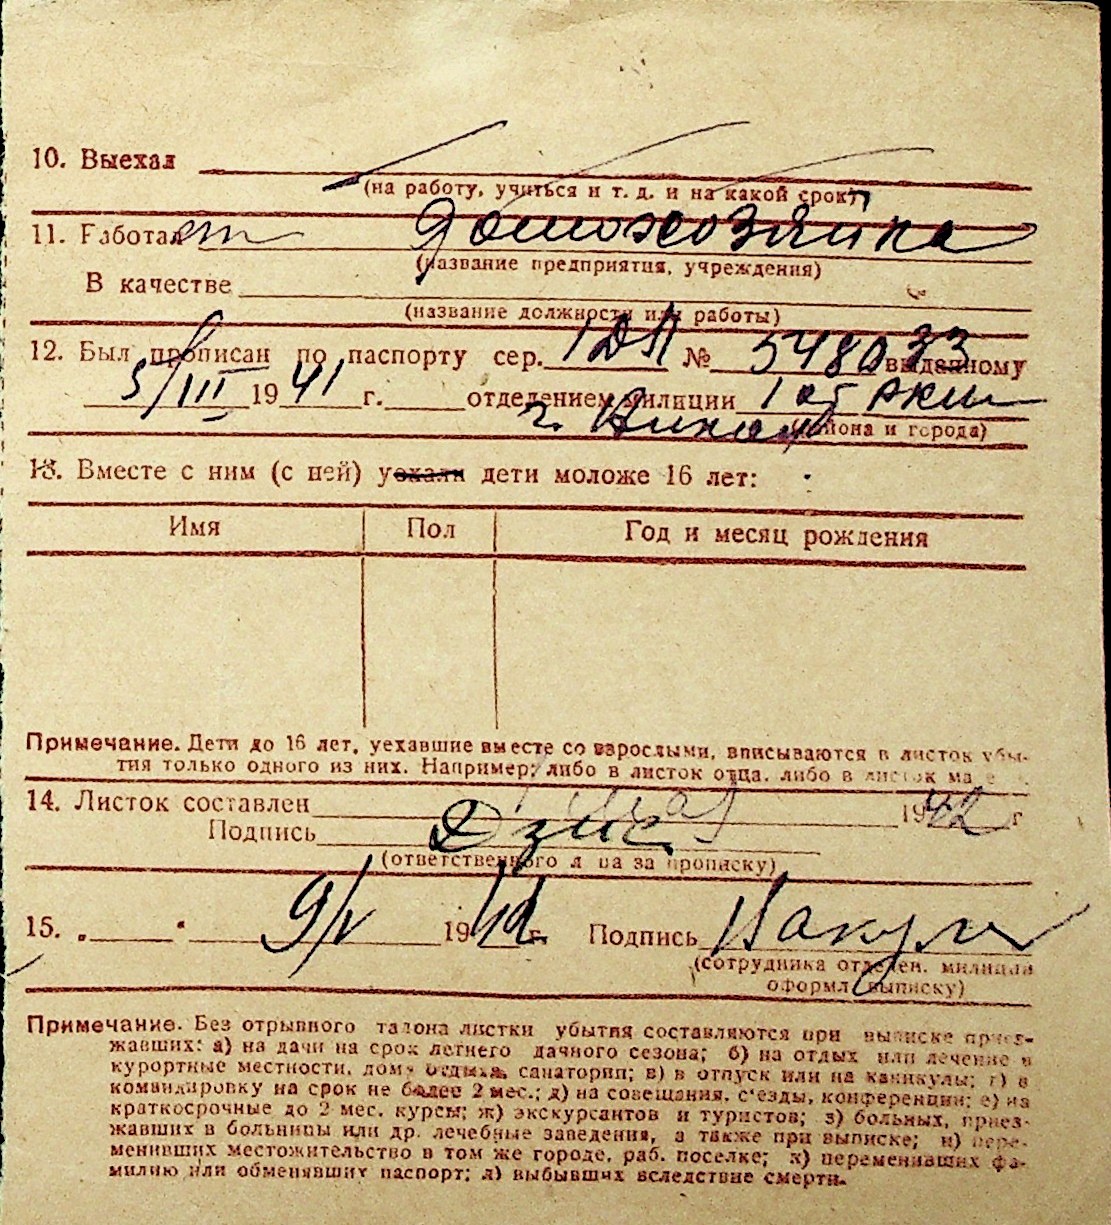 10. Выехал
(на работу, учиться и т. д. и на какой срок)
11. Работал домохозяйка
(название предприятия, учреждения)
В качестве
(название должности или работы)
12. Был прописан по паспорту сер. № 548033 выданному
5/III 1941 г. отделением милиции 1 от РКМ
г.
(района и города)
13. Вместе с ним (с ней) уехали дети моложе 16 лет:
Имя Пол Год и месяц рождения
Примечание. Дети до 16 лет, уехавшие вместе со взрослыми, вписываются в листок убы-
тия только одного из них. Например: либо в листок отца, либо в листок
14. Листок составлен 1942 г
Подпись
(ответственного за прописку)
15. „ “ 9/V 1942 г. Подпись
(сотрудника отделен. милиции
оформл. выписку)
Примечание. Без отрывного талона листки убытия составляются при выписке приез-
жавших: а) на дачи на срок летнего дачного сезона; б) на отдых или лечение в
курортные местности, дома отдыха, санатории; в) в отпуск или на каникулы; г) в
командировку на срок не более 2 мес.; д) на совещания, с'езды, конференции; е) на
краткосрочные до 2 мес. курсы; ж) экскурсантов и туристов; з) больных, приез-
жавших в больницы или др. лечебные заведения, а также при выписке; и) пере-
менивших местожительство в том же городе, раб. поселке; к) переменивших фа-
милию или обменявших паспорт; л) выбывших вследствие смерти.